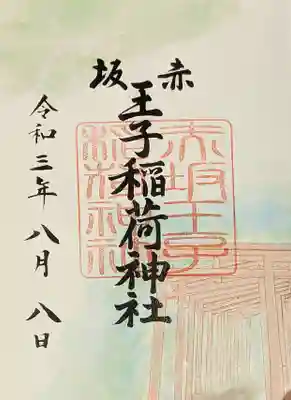 赤坂
王子稲荷神社
令和三年八月八日
赤坂王子
稲荷神社